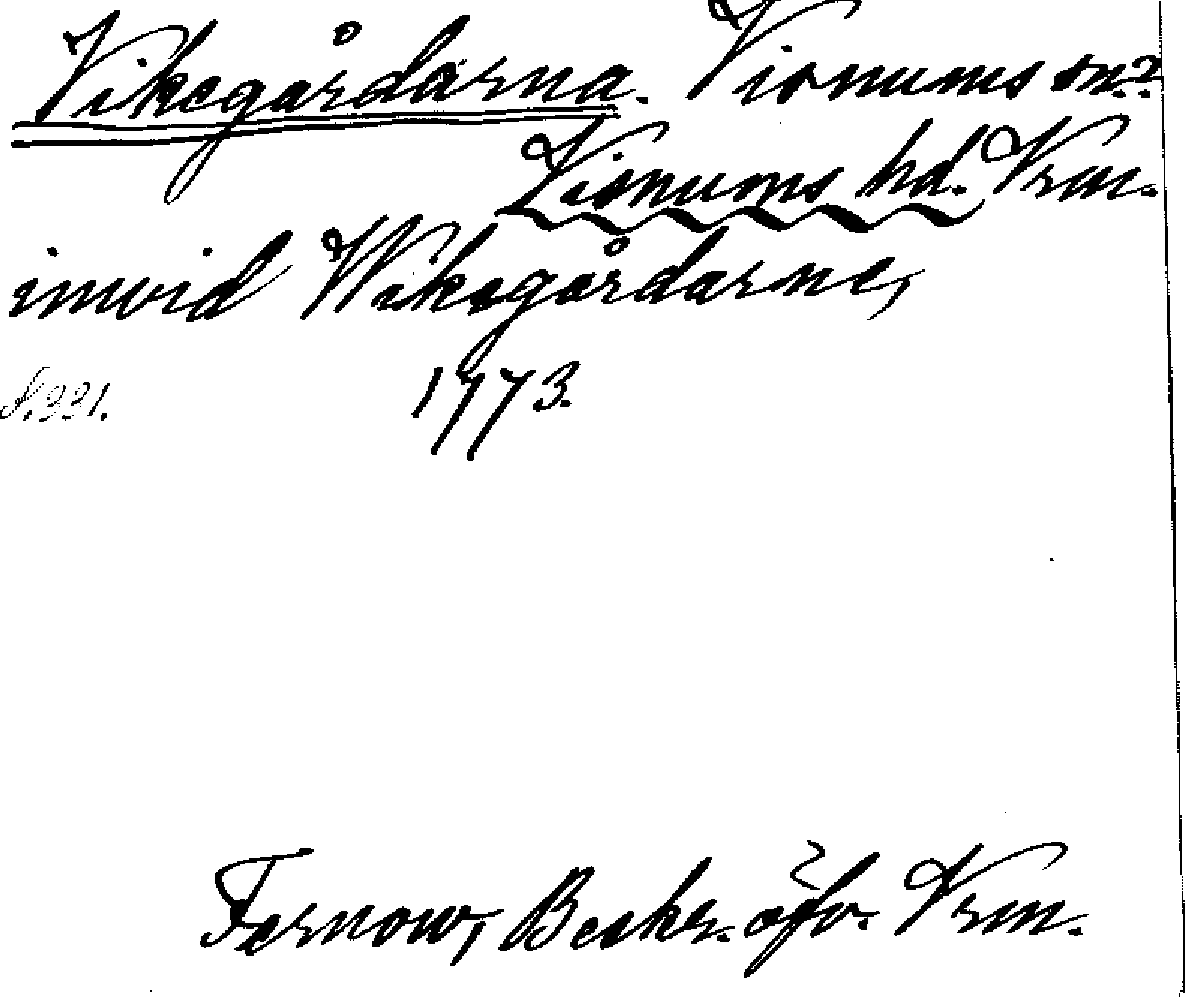 Vikegårdarna. Visnums sn.?
Visnums hd. Vrm.
inwid Wikegårdarne,
S. 221. 1773.
Fernow, Beskr. öfv. Vrm.